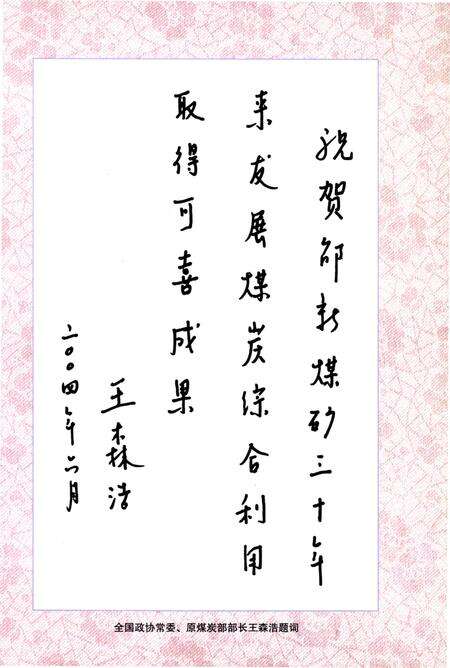 祝贺邵新煤矽三十年
来发展煤炭综合利用
取得可喜成果
王森浩
二〇〇四年六月
全国政协常委、原煤炭部部长王森浩题词